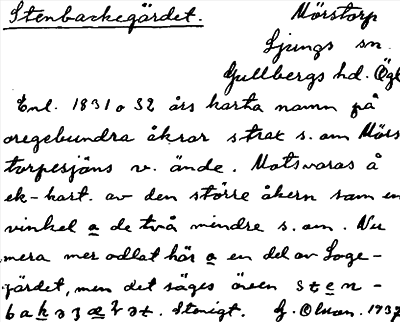 Stenbackegärdet.
Mörstorp
Ljungs sn.
Gullbergs hd. Ögl
Enl. 1831 o 32 års karta namn på
oregebundra åkrar strax s. om Mörs
torpesjöns v. ände. Motsvaras å
ek-kart. av den större åkern som en
vinkel a de två mindre s. om. Nu
mera mer odlat här a en del av Loge-
gärdet, men det säges även sten-
Stenigt. G. Olsson. 1937